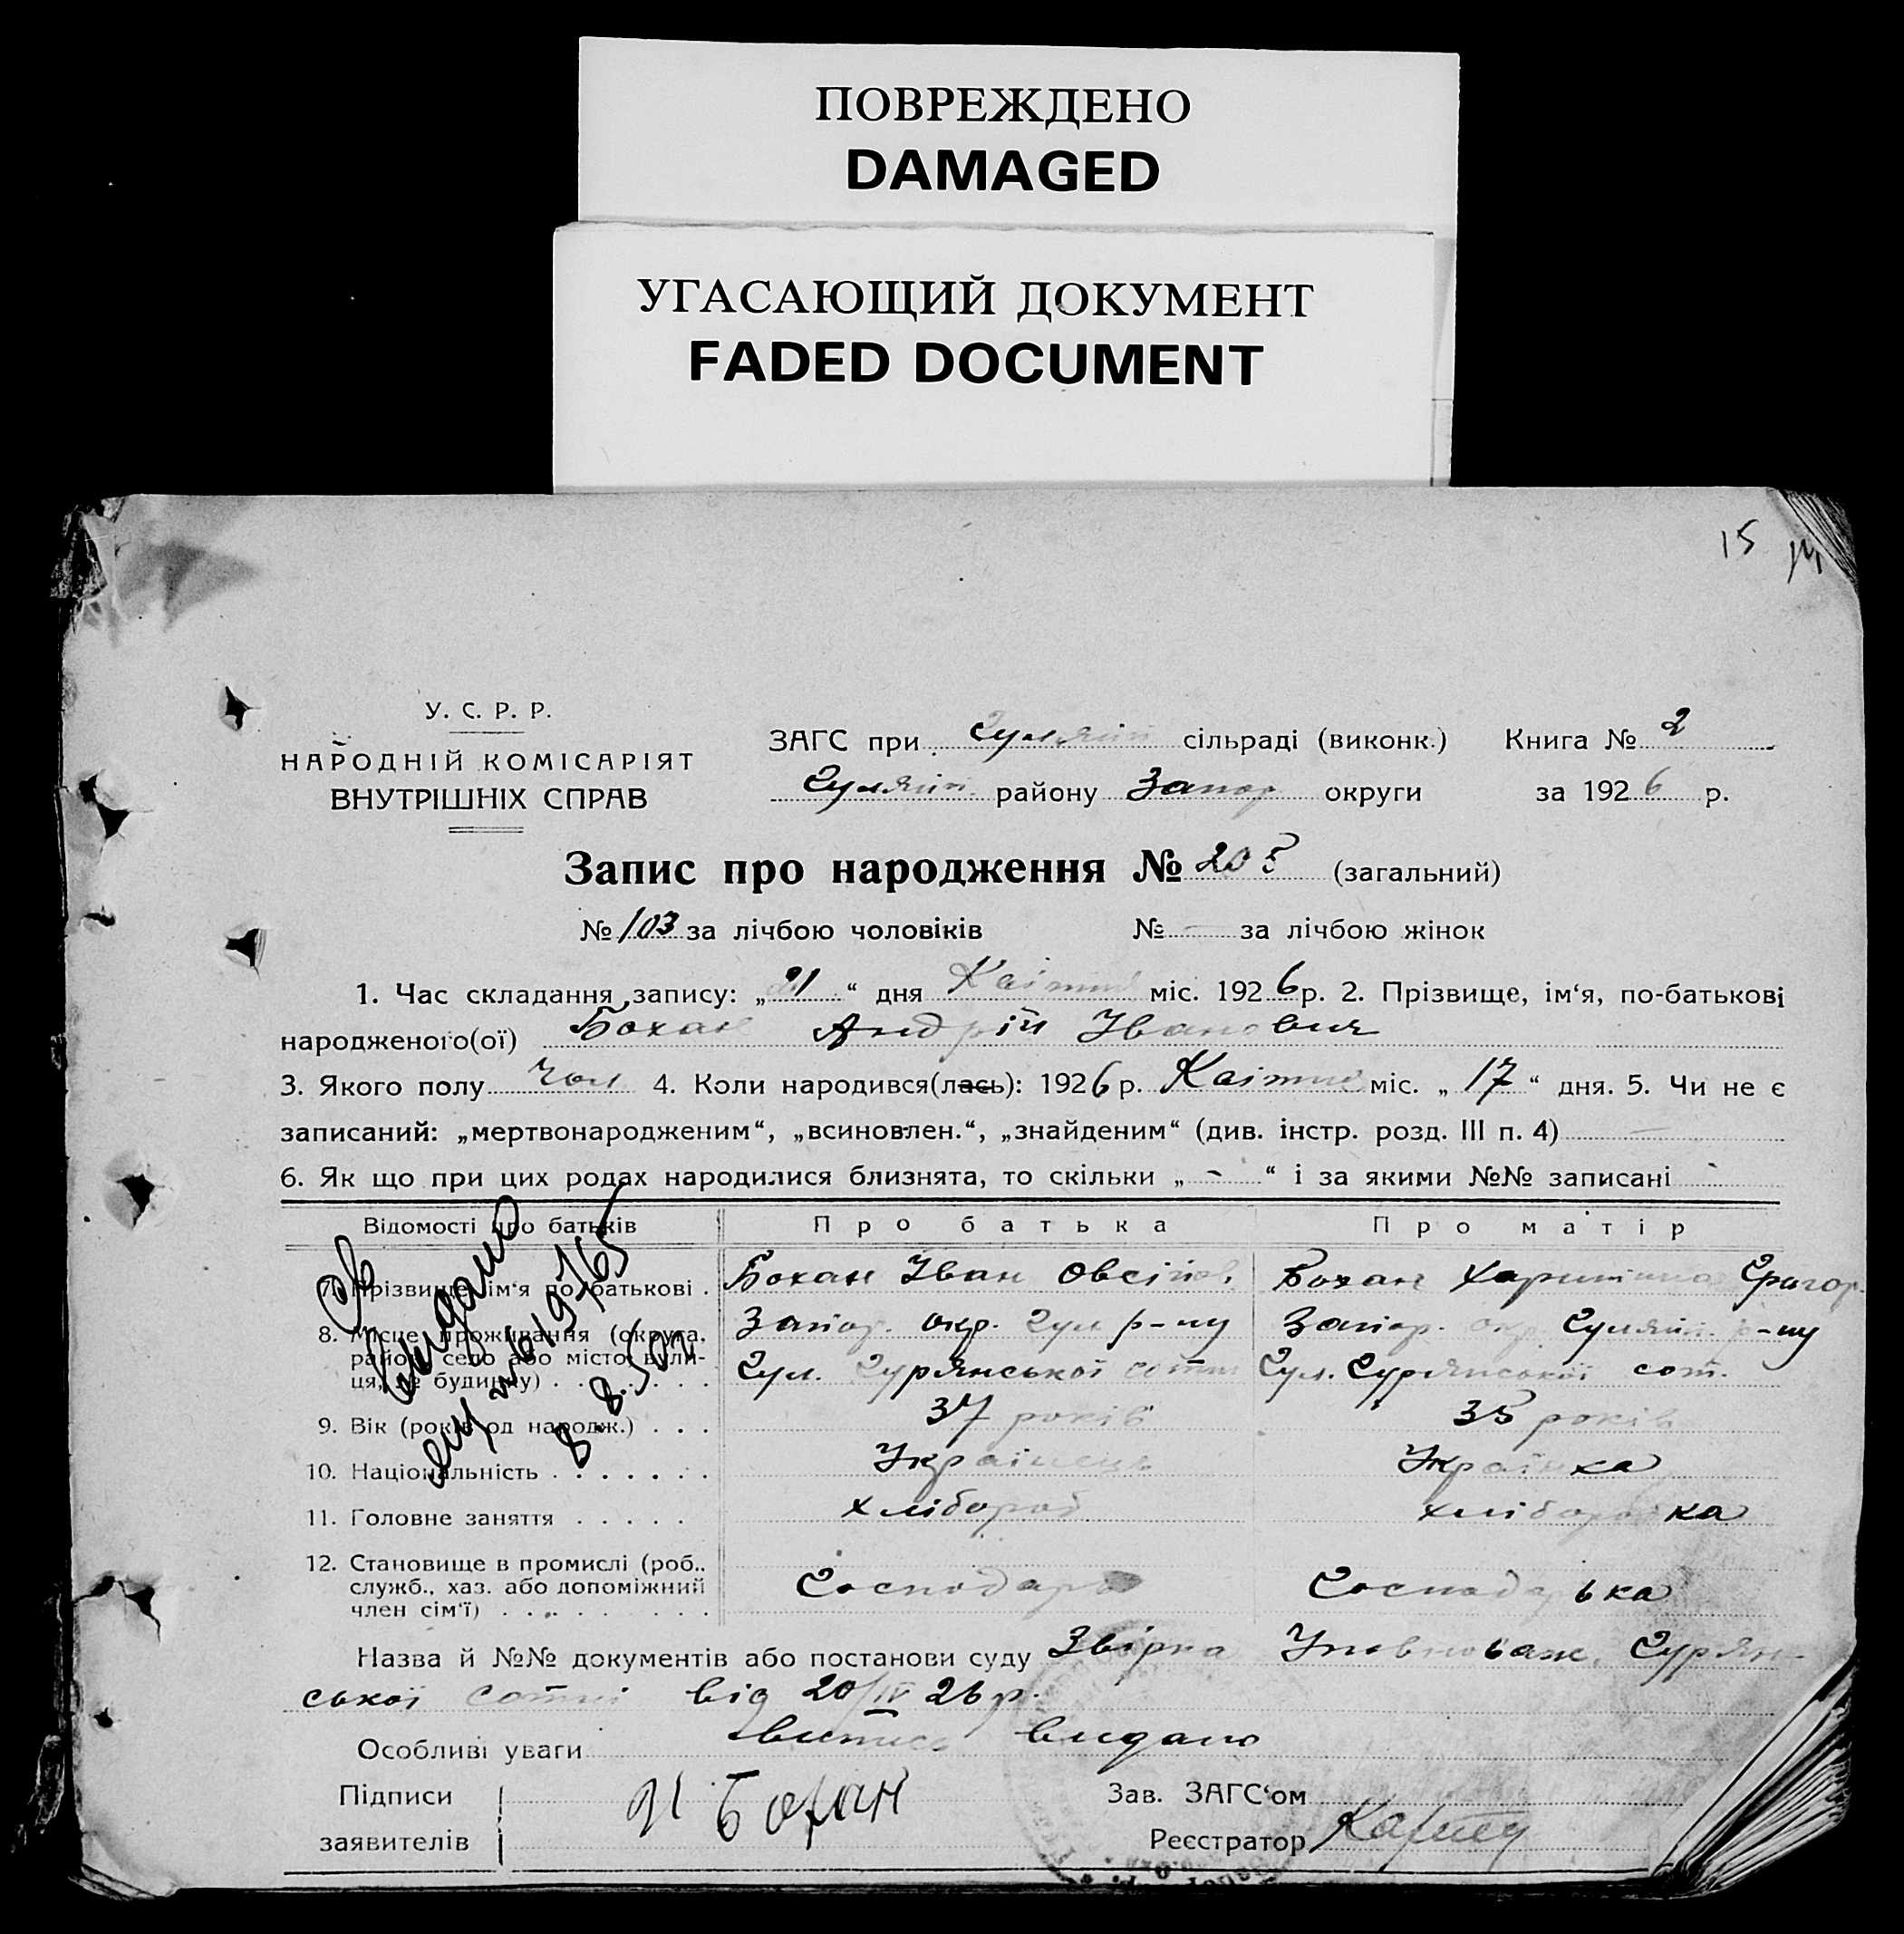 ПОВРЕЖДЕНО
DAMAGED
УГАСАЮЩИЙ ДОКУМЕНТ
FADED DOCUMENT
15
У. С. Р. Р.
НАРОДНІЙ КОМІСАРІЯТ
ВНУТРІШНІХ СПРАВ
ЗАГС при сільраді (виконк.) Книга № 2
району Запор округи за 1926 р.
Запис про народження № 205 (загальний)
№ 103 за лічбою чоловіків № — за лічбою жінок
1. Час складання запису: „21“ дня Квітня міс. 1926 р. 2. Прізвище, ім‘я, по-батькові
народженого(ої) Бохан Андрій Іванович
3. Якого полу чол 4. Коли народився(лась): 1926 р. Квітня міс. „17“ дня. 5. Чи не є
записаний: „мертвонародженим“, „всиновлен.“, „знайденим“ (див. інстр. розд. III п. 4) —
6. Як що при цих родах народилися близнята, то скільки „-“ і за якими №№ записані
Відомості про батьків Про батька Про матір
7. Прізвище ім‘я по батькові . Бохан Іван Овсійов. Бохан Григор.
8. Місце проживання (округа, Запор. окр. Гул р-ну Запор. окр. р-ну
район, село або місто, вули- Гул. сотні Гул. сот.
ця, № будинку) . . . . . . . .
9. Вік (років од народж.) . . . 37 років 35 років
10. Національність . . . . . . . Українець Українка
11. Головне заняття . . . . . хлібороб хліборобка
12. Становище в промислі (роб.,
служб., хаз. або допоміжний Господарь Господарька
член сім‘ї) . . . . . . . . .
Видано
8.8.50г
Назва й №№ документів або постанови суду Звірка Уповноваж.
ської сотні від 20/IV 26 р.
Особливі уваги витись видано
Підписи И Бохан Зав. ЗАГС‘ом
заявителів Реєстратор